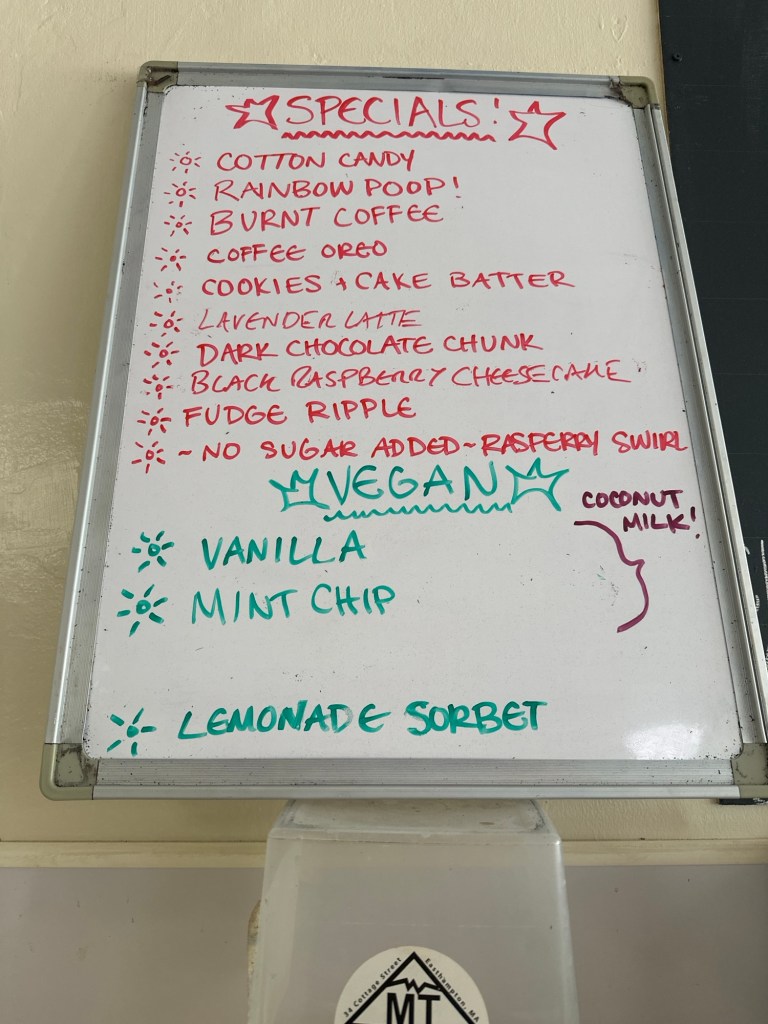 SPECIALS!
COTTON CANDY
RAINBOW POOP!
BURNT COFFEE
COFFEE OREO
COOKIES + CAKE BATTER
LAVENDER LATTE
DARK CHOCOLATE CHUNK
BLACK RASPBERRY CHEESECAKE
FUDGE RIPPLE
~NO SUGAR ADDED~RASPERRY SWIRL
VEGAN
COCONUT
MILK!
VANILLA
MINT CHIP
LEMONADE SORBET
34 Cottage Street
Easthampton, MA
MT